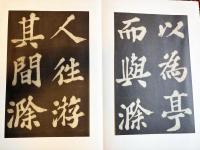 以為亭
而與滁
人往游
其間滁